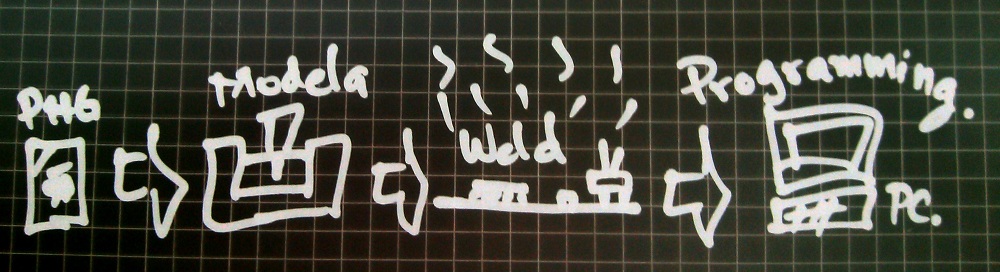 PNG
Modela
Weld
Programming.
PC.